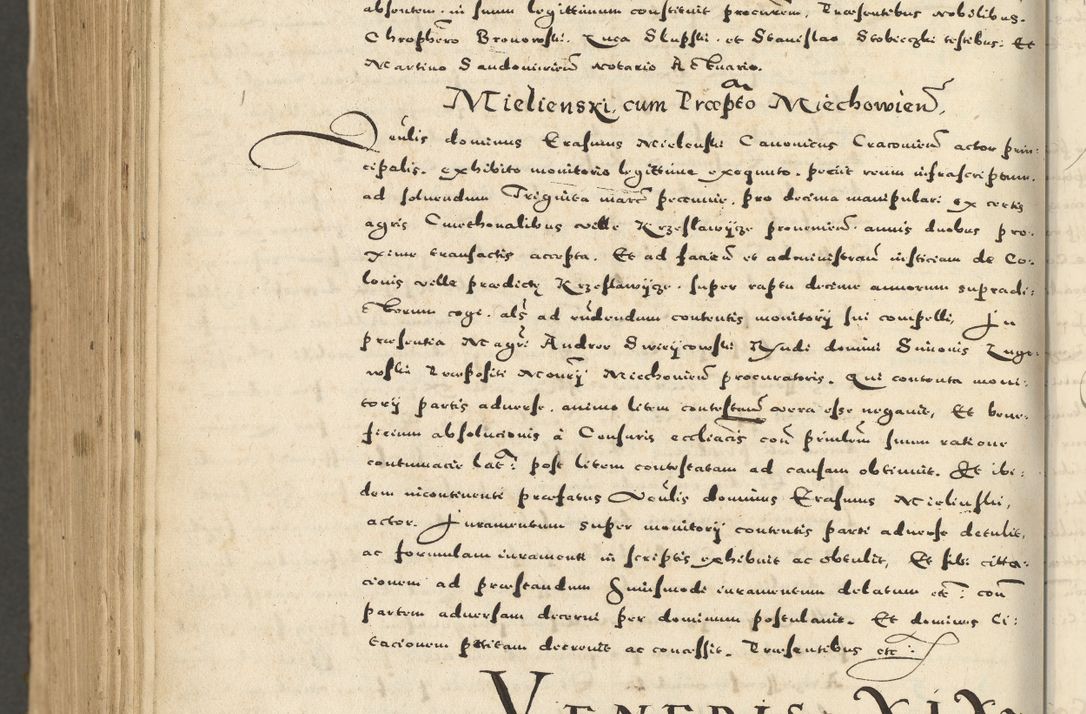 absentem. in suum legittimum constituit procurem, Præsentibus Nobilibus.
Chrophero Bronowski. Luca Slupski. et Stanislao Stobieczki testibus: Et
Martino Sandomirien Notario Actuario.
Mielienski, cum Præpto Miechowien,
Venlis dominus Erasmus Mielenski Canonicus Cracovien actor prin:
cipalis. exhibito monitorio legittime exequuto. petiit reum infrascriptum.
ad solvendum Triginta marc pecuniæ. pro decima manipulari ex certis
agris Cmethonalibus villæ Krzeslawycze provenien. annis duobus pro:
xime transactis accepta. Et ad facien et administran iusticiam de Co:
lonis villæ prædictę Krzeslawycze. super raptu decimæ annorum supradi:
ctorum cogi. als ad videndum contentis monitorij sui compelli, In
præsentia Magri Andreæ Swierycowski Syndi domini Simonis Luge:
wski Præpositi Monrij Miechovien procuratoris. Qui contenta moni:
torij partis adversæ. animo litem contestan vera esse negavit, Et bene:
ficium absolucionis à Censuris eccliacis con prinlem suum ratione
contumaciæ lat: post litem contestatam ad causam obtinuit. Et ibi:
dem incontinenti præfatus Venlis dominus Erasmus Mielinski,
actor. Juramentum super monitorij contentis parti adversæ detulit,
ac formulam iuramenti in scriptis exhibuit ac obtulit, Et sibi citta:
cionem ad præstandum huiusmodi iuramentum delatum etc: con
partem adversam decerni per dominum postulavit. Et dominus Ci:
tacionem petitam decrevit ac concessit. Præsentibus etc:
VENERIS XIX